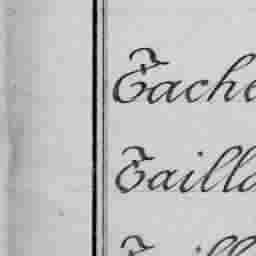 Tache
Tailla
Taill